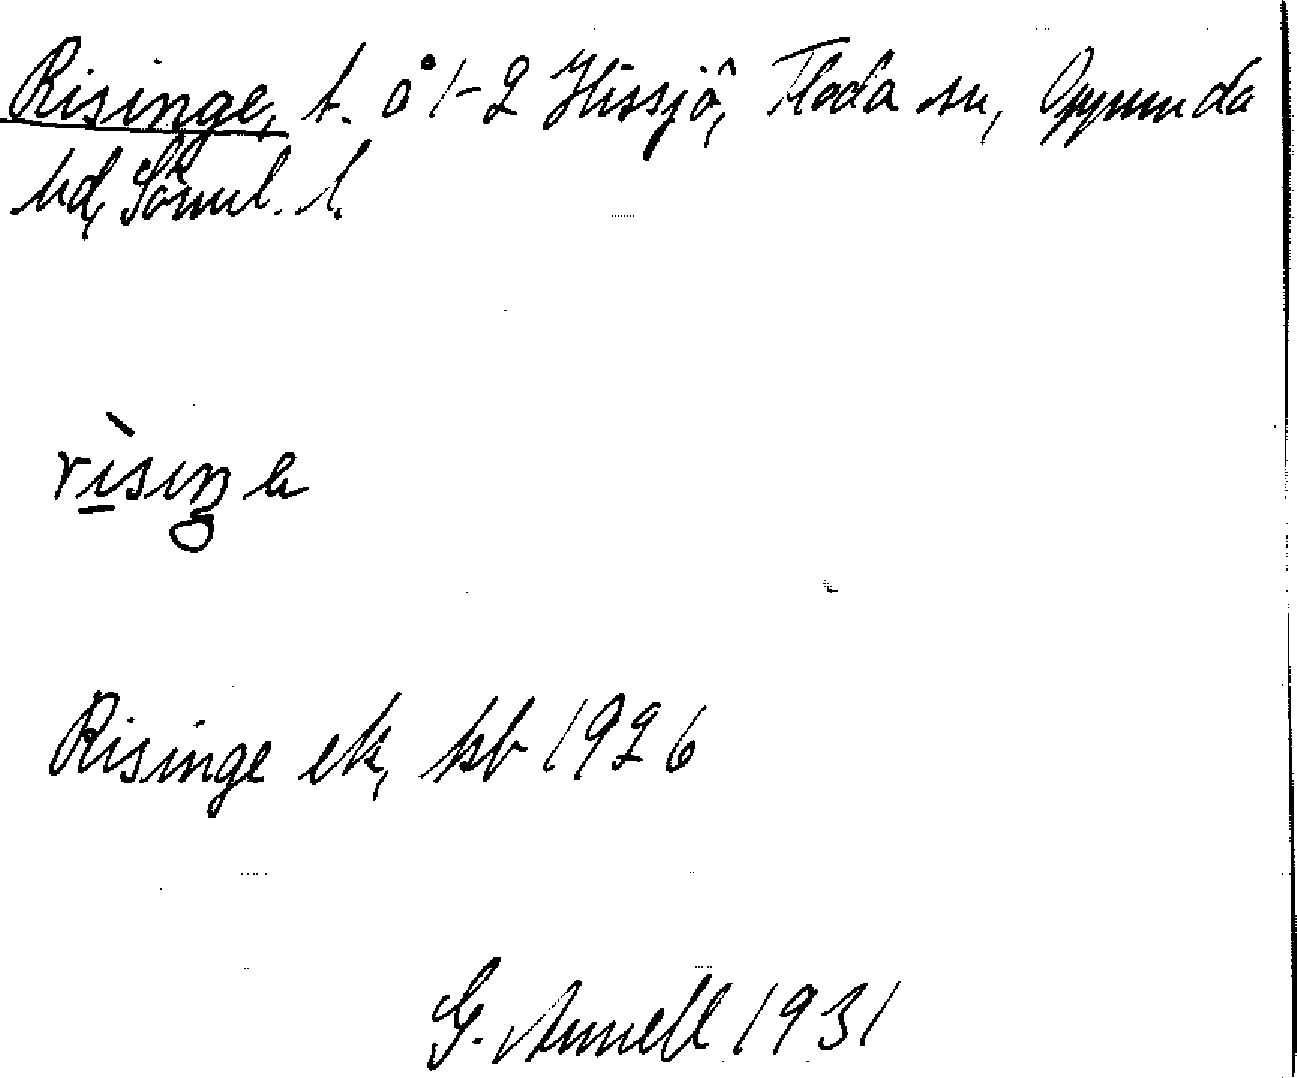 Risinge, t. å 1-2 Hissjö, Floda sn, Oppunda
hd, Sörml. l.
rìsiŋe
Risinge ek, kb 1926
G. Annell 1931